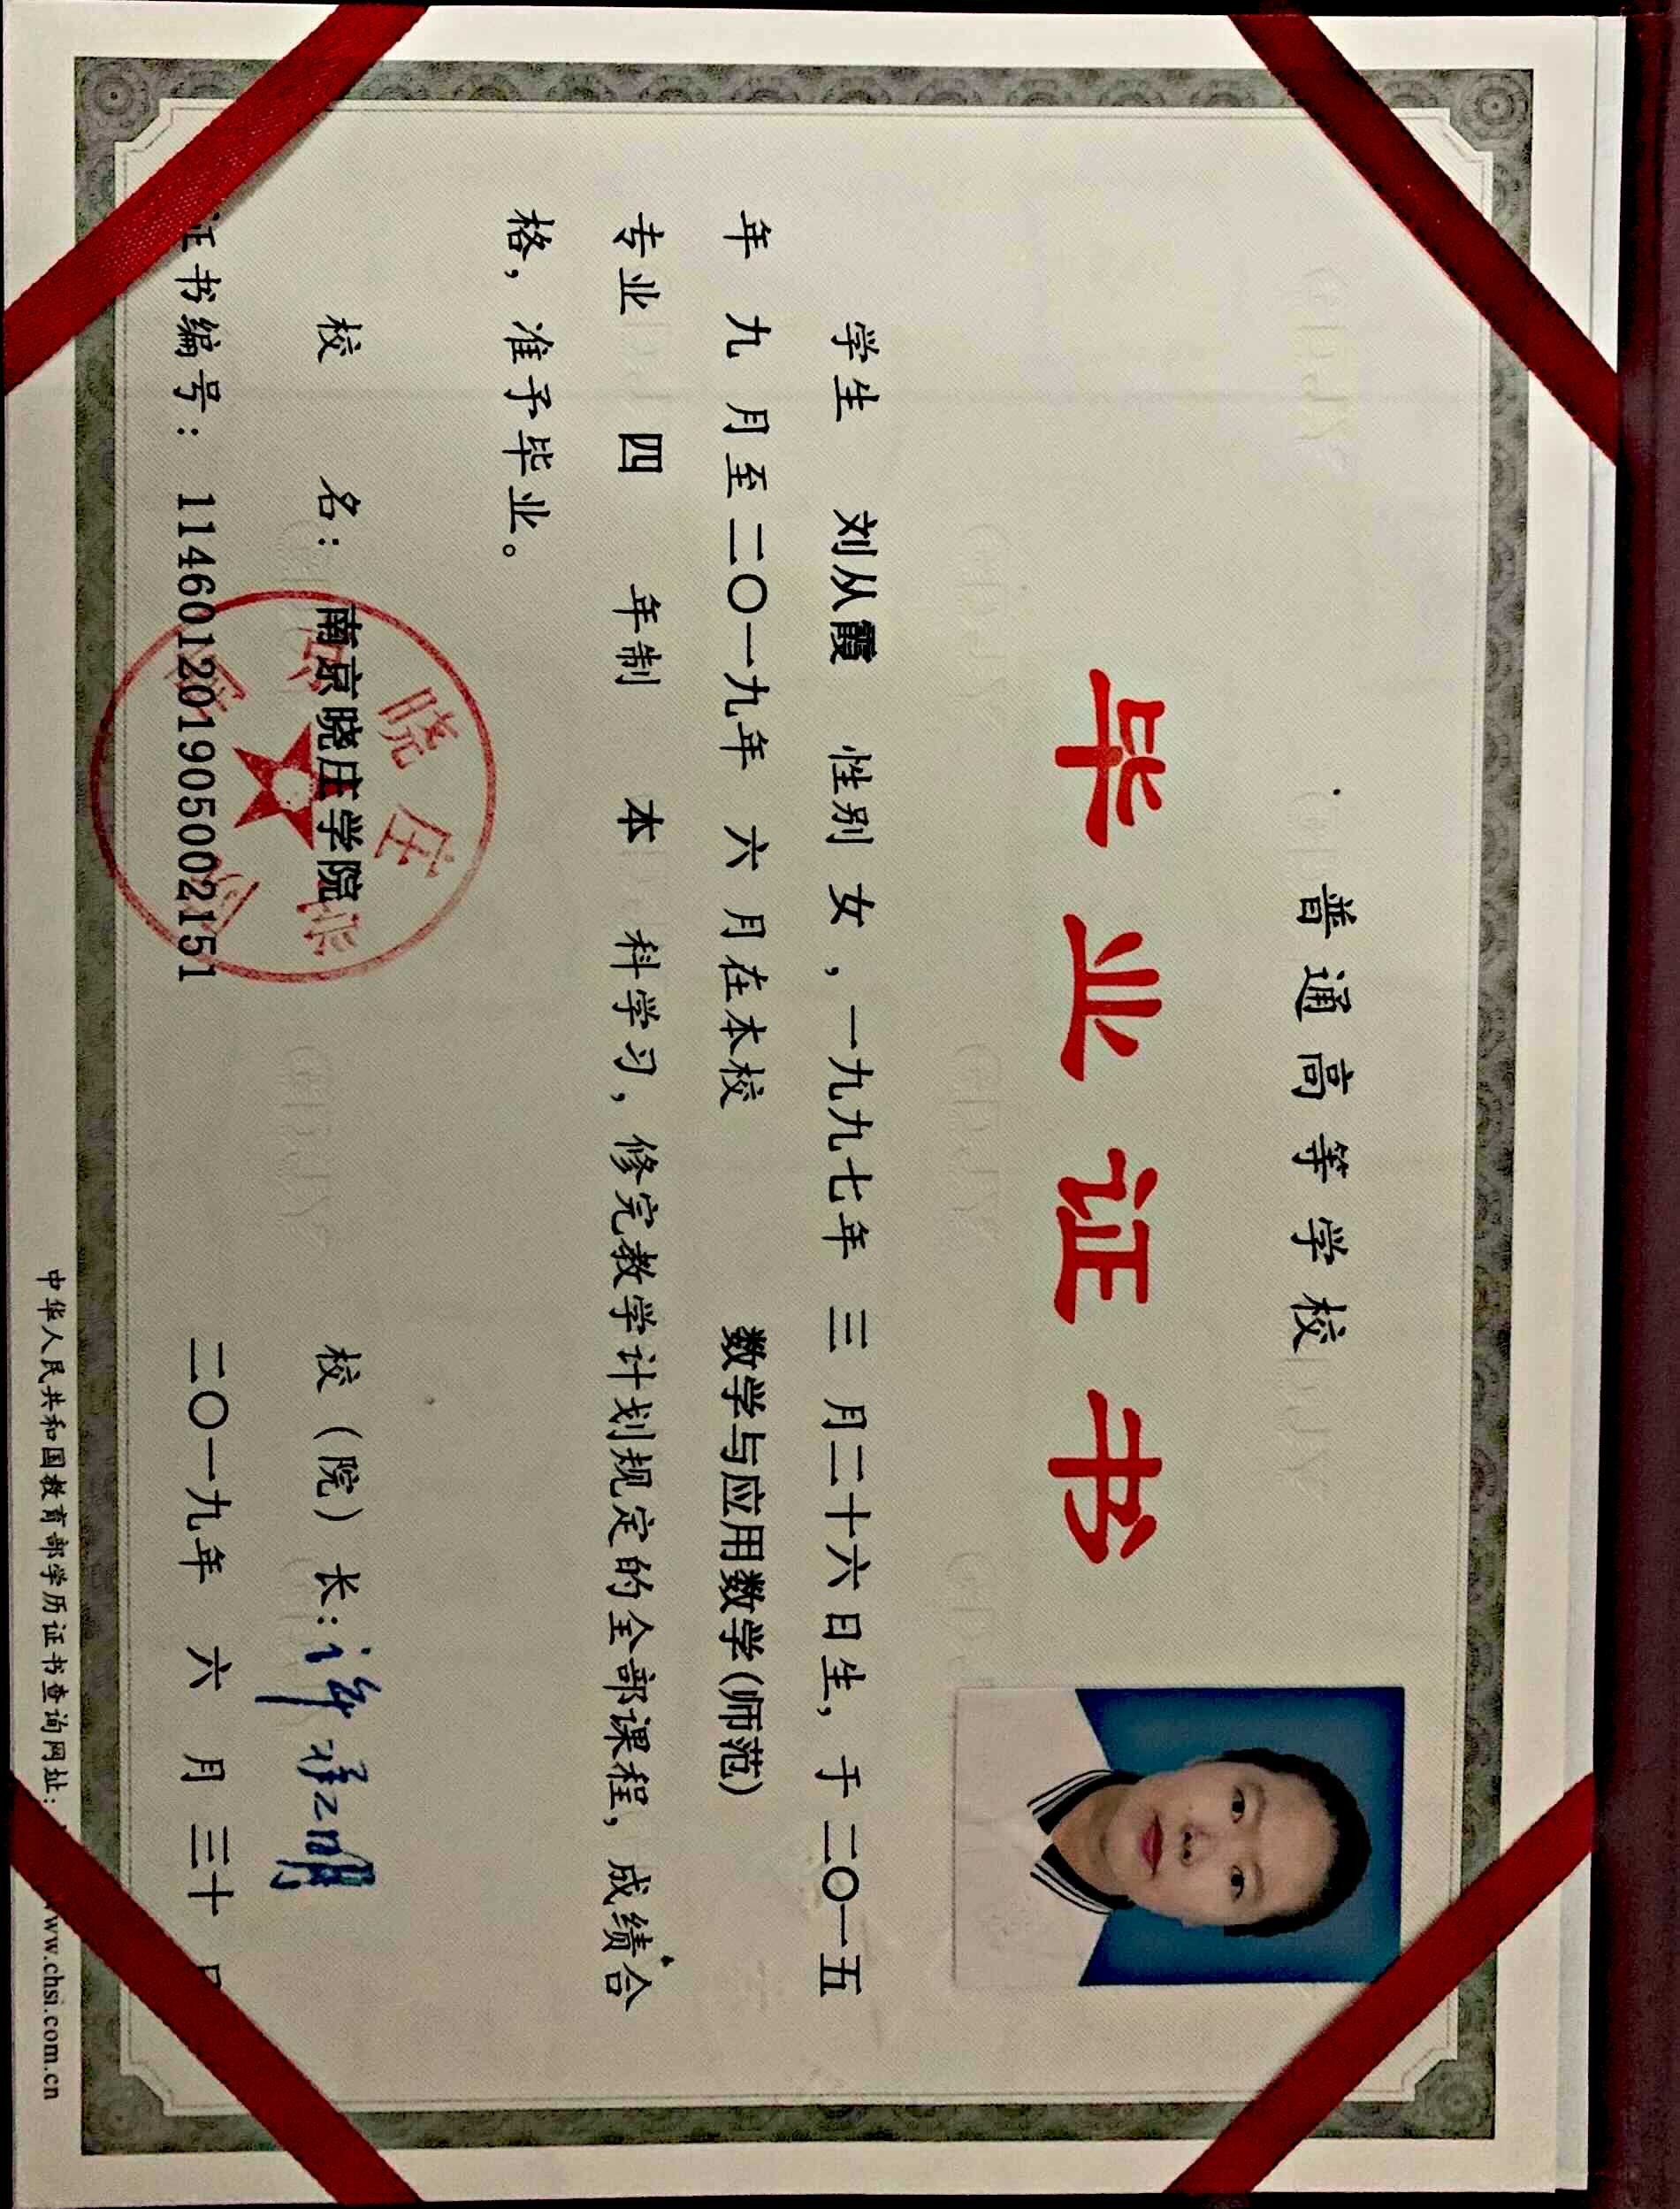 普通高等学校
毕业证书
学生 刘从霞 性别 女，一九九七年 三 月二十六日生，于二〇一五
年 九 月至二〇一九年 六 月在本校 数学与应用数学(师范)
专业 四 年制 本 科学习，修完教学计划规定的全部课程，成绩合
格，准予毕业。
校 名：南京晓庄学院 校（院）长：
证书编号：114601201905002151 二〇一九年 六 月 三十 日
中华人民共和国教育部学历证书查询网址：www.chsi.com.cn